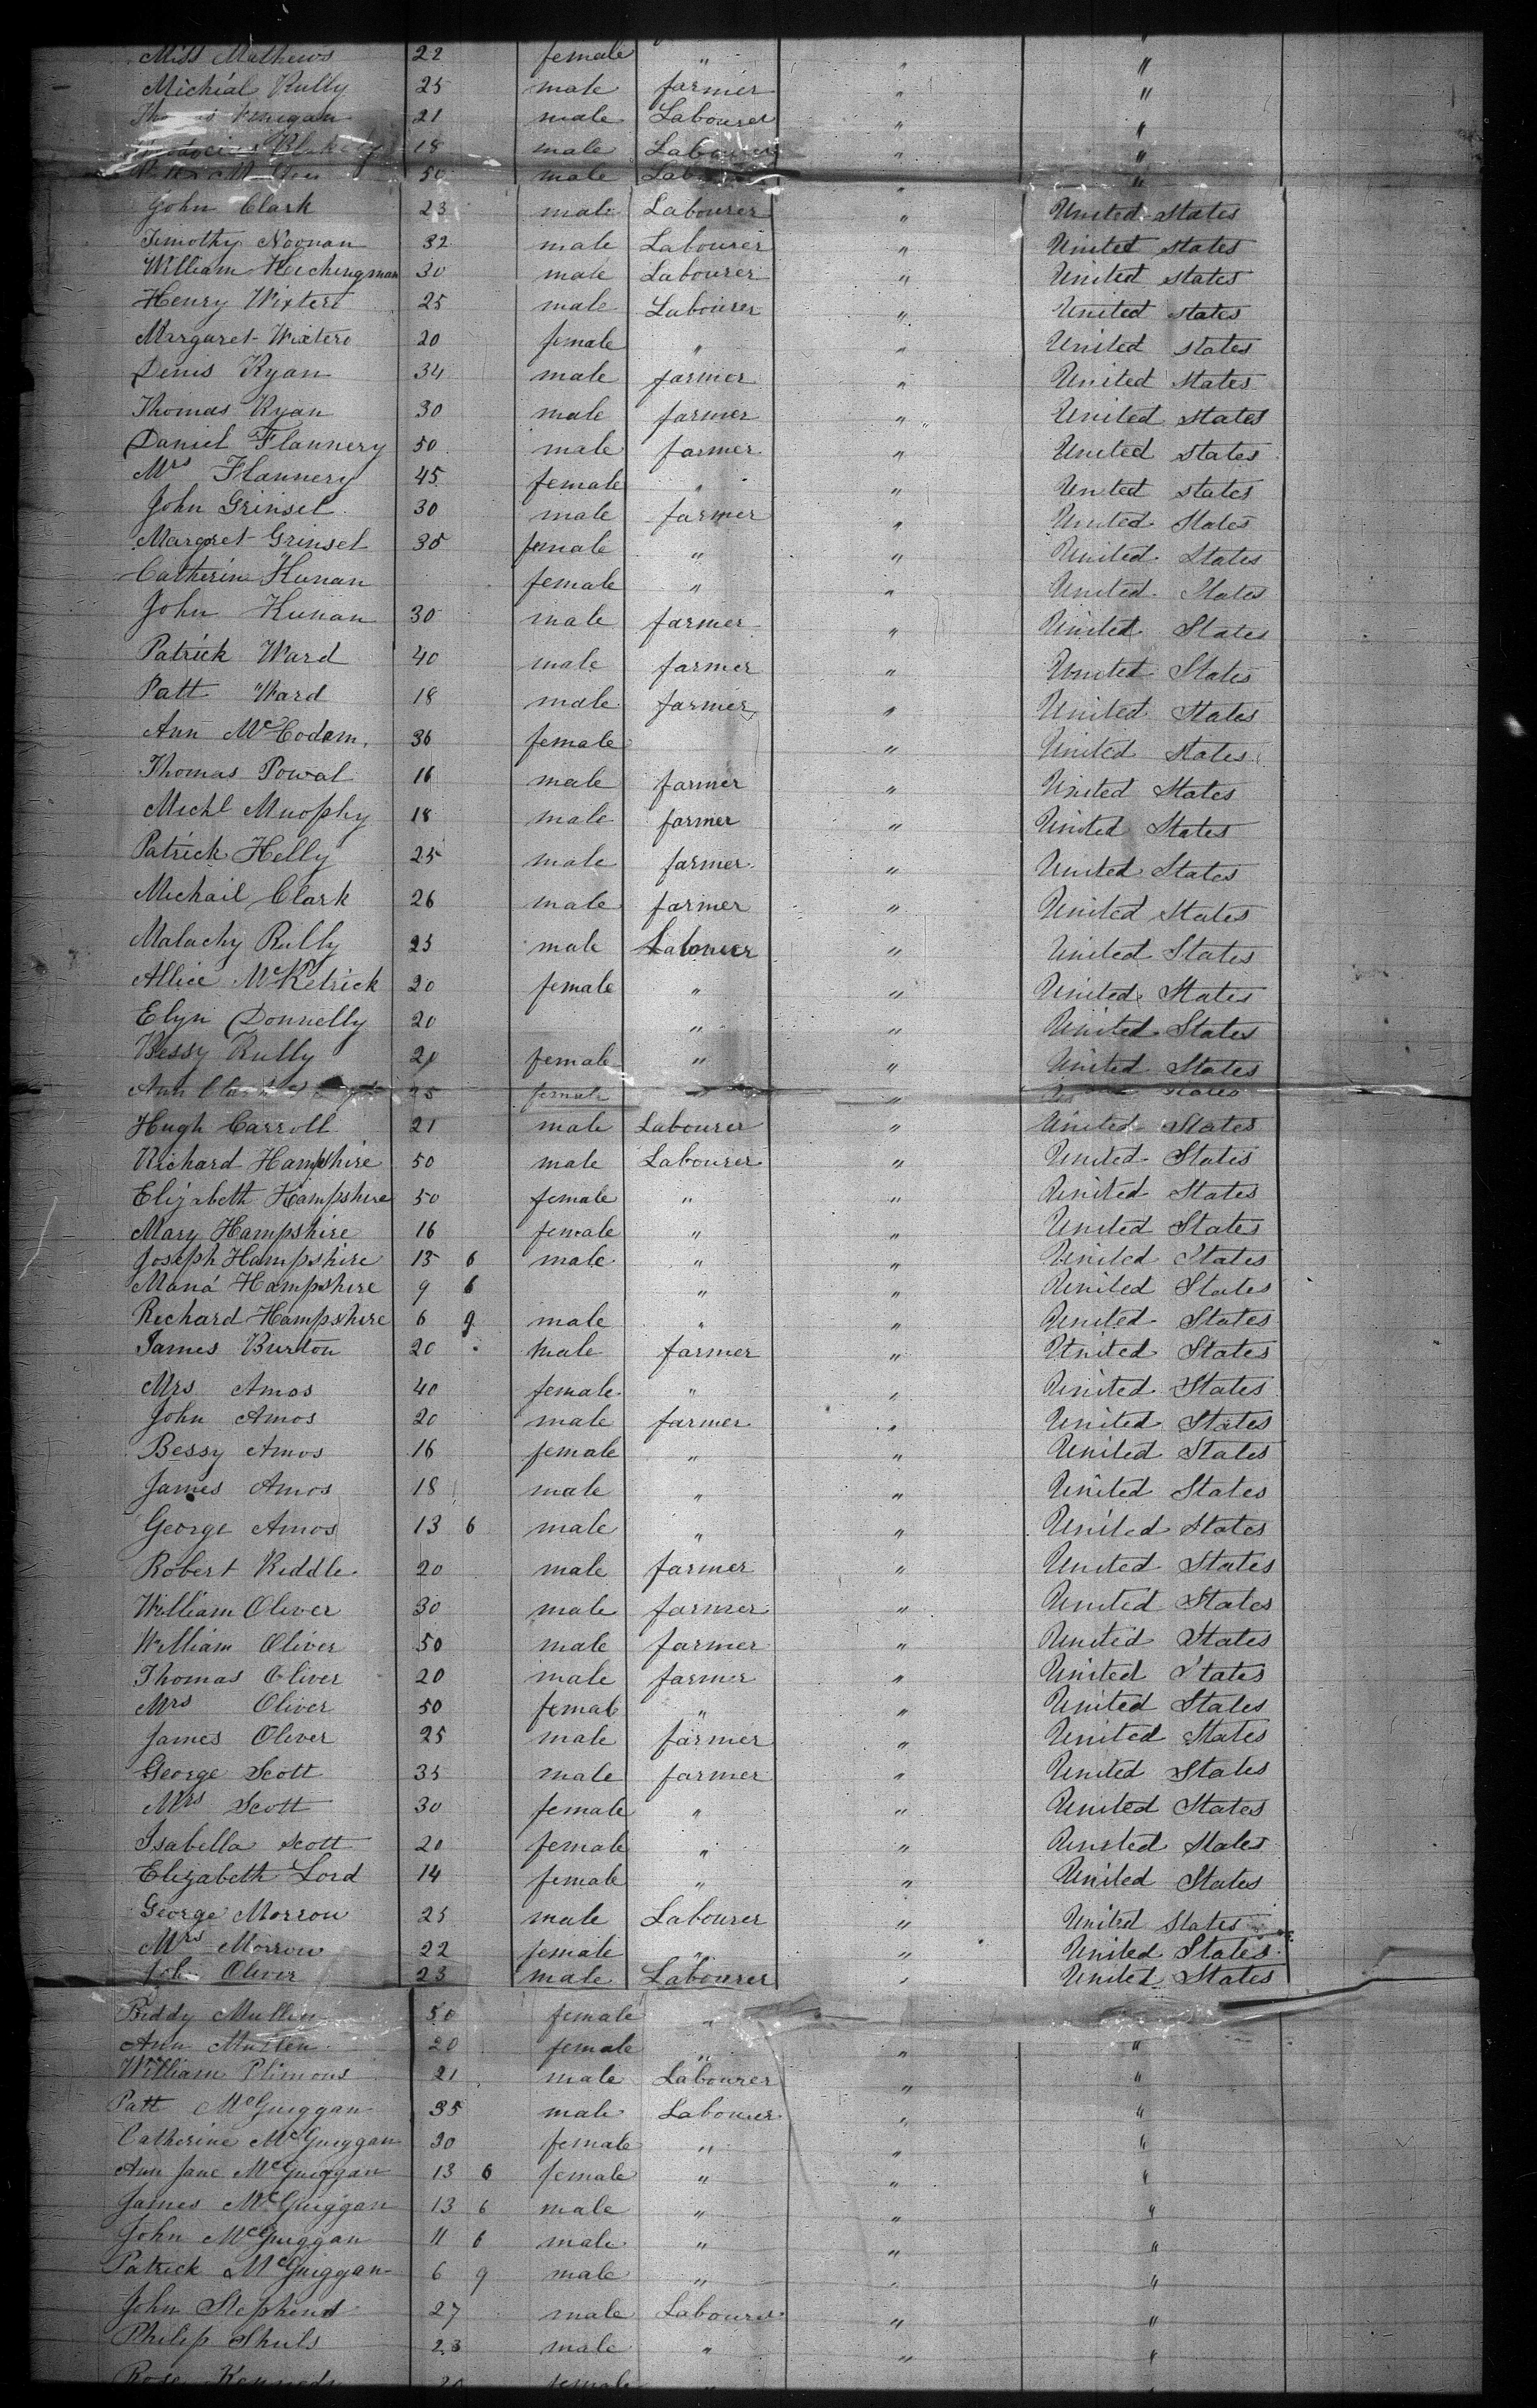 Miss Mathews 22 female " " "
Michial Rully 25 male farmer " "
21 male Labourer " "
18 male Labourer " "
50 male " "
John Clark 23 male Labourer " United States
Timothy Noonan 32 male Labourer " United States
William Hinchingman 30 male Labourer " United States
Henry Wixtere 25 male Labourer " United States
Margaret Wixtere 20 female " " United States
Denis Ryan 34 male farmer " United States
Thomas Ryan 30 male farmer " United States
Daniel Flannery 50 male farmer " United States
Mrs Flannery 45 female " " United States
John Grinsel 30 male farmer " United States
Margret Grinsel 30 female " " United States
Catherine Kunan female " " United States
John Kunan 30 male farmer " United States
Patrick Ward 40 male farmer " United States
Patt Ward 18 male farmer " United States
Ann McCodam 36 female " United States
Thomas Powal 16 male farmer " United States
Michl Muophy 18 male farmer " United States
Patrick Helly 25 male farmer " United States
Michail Clark 26 male farmer " United States
Malachy Rully 23 male Labourer " United States
Allice McKetrick 20 female " " United States
Elyn Donnelly 20 " " United States
Bessy Rully 20 female " " United States
Ann 25 female " "
Hugh Carroll 21 male Labourer " United States
Richard Hampshire 50 male Labourer " United States
Elizabeth Hampshire 50 female " " United States
Mary Hampshire 16 female " " United States
Joseph Hampshire 13 6 male " " United States
Maná Hampshire 9 6 " " United States
Richard Hampshire 6 9 male " " United States
James Burton 20 male farmer " United States
Mrs Amos 40 female " " United States
John Amos 20 male farmer " United States
Bessy Amos 16 female " " United States
James Amos 18 male " " United States
George Amos 13 6 male " " United States
Robert Riddle 20 male farmer " United States
William Oliver 30 male farmer " United States
William Oliver 50 male farmer " United States
Thomas Oliver 20 male farmer " United States
Mrs Oliver 50 female " " United States
James Oliver 25 male farmer " United States
George Scott 35 male farmer " United States
Mrs Scott 30 female " " United States
Isabella Scott 20 female " " United States
Elizabeth Lord 14 female " " United States
George Morrow 25 male Labourer " United States
Mrs Morrow 22 female " " United States
John Oliver 23 male Labourer " United States
Biddy Mullen 50 female "
Ann Mullen 20 female " " "
William Plimons 21 male Labourer " "
Patt McGuiggan 35 male Labourer " "
Catherine McGuiggan 30 female " " "
Ann Jane McGuiggan 13 6 female " " "
James McGuiggan 13 6 male " " "
John McGuiggan 11 6 male " " "
Patrick McGuiggan 6 9 male " " "
John Stephens 27 male Labourer " "
Philip Shuls 23 male " " "
Rose Kennedy 20 female "